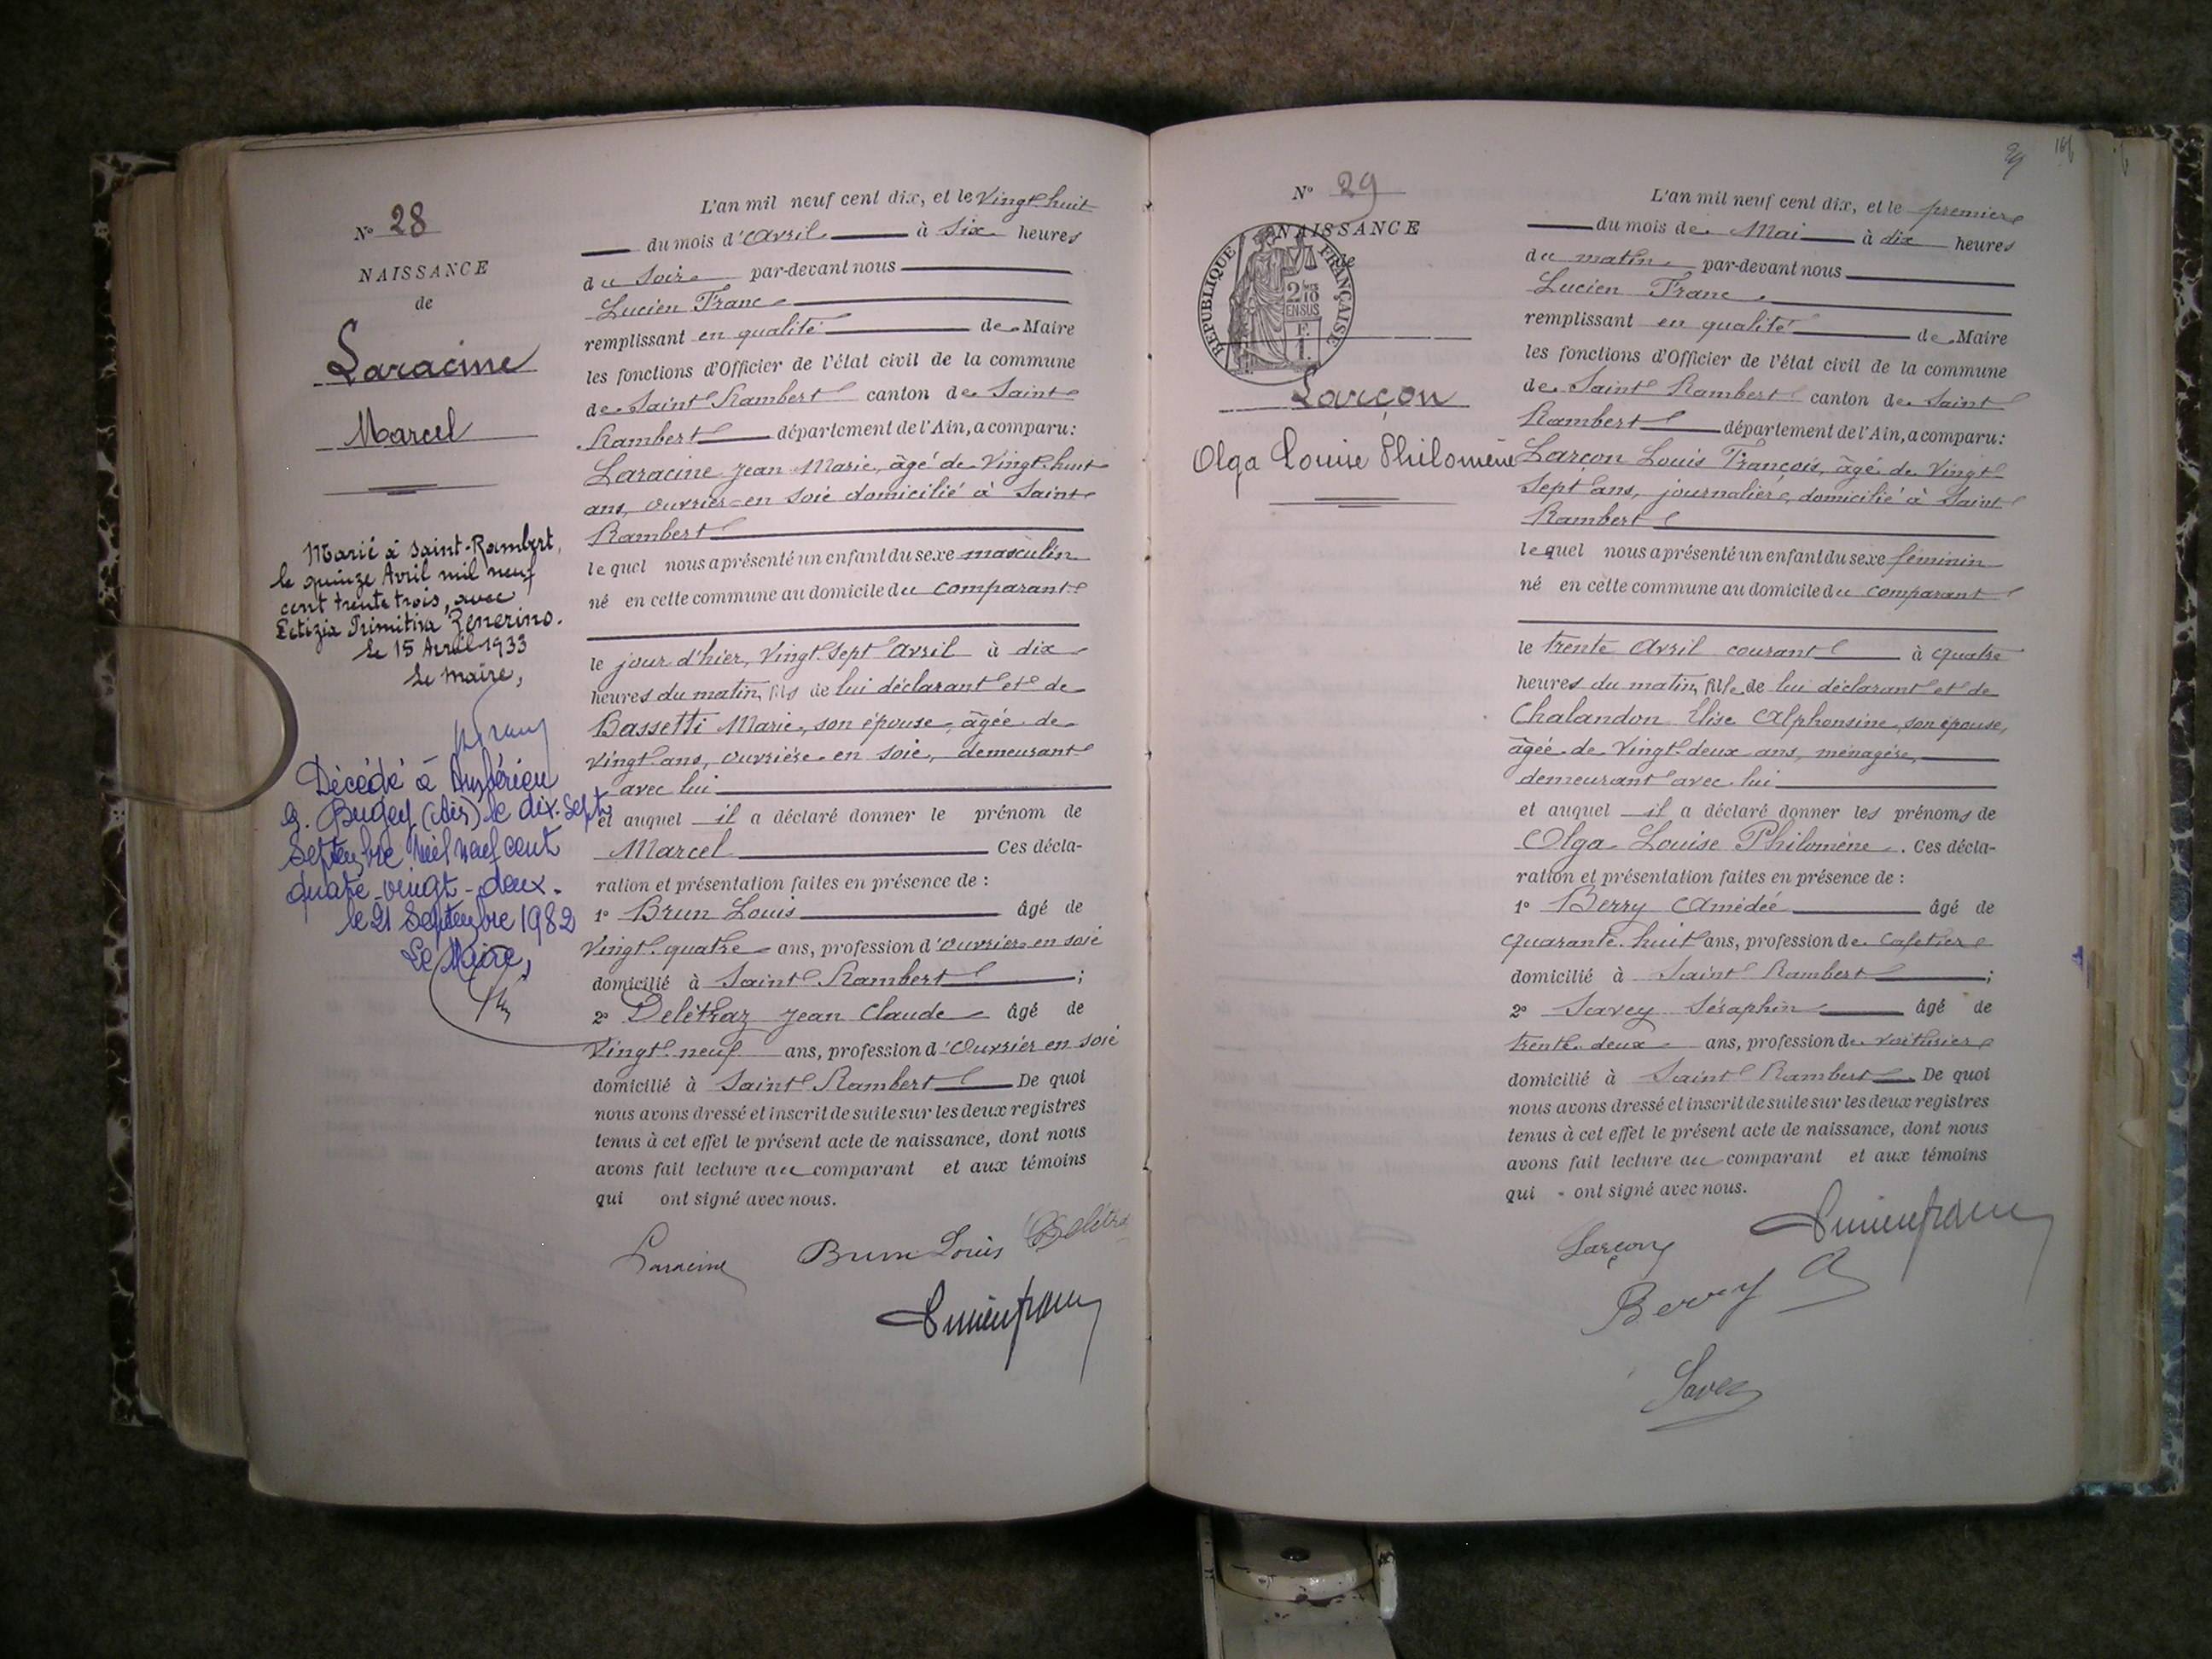 N° 28
NAISSANCE
de
Laracine
Marcel
Marié à Saint-Rambert,
le quinze Avril mil neuf
cent trente trois, avec
Letizia Primitiva Zenerino.
le 15 Avril 1933
Le maire,
Décédé à Ambérieu
e. Bugey (Ain) le dix. sept
Septembre mil neuf cent
quatre-vingt-deux.
le 21 Septembre 1982
Le Maire,
L'an mil neuf cent dix, et le Vingt huit
du mois d'Avril à Six heures
du Soir par-devant nous
Lucien Franc
remplissant en qualité de Maire
les fonctions d'Officier de l'état civil de la commune
de Saint Rambert canton de Saint
Rambert département de l'Ain, a comparu:
Laracine Jean Marie, âgé de Vingt. huit
ans, ouvrier en soie domicilié à Saint
Rambert
lequel nous a présenté un enfant du sexe masculin
né en cette commune au domicile du comparant
le jour d'hier, Vingt. Sept Avril à dix
heures du matin, fils de lui déclarant et de
Bassetti Marie, son épouse, âgée de
Vingt ans, ouvrière en soie, demeurant
avec lui
et auquel il a déclaré donner le prénom de
Marcel Ces décla-
ration et présentation faites en présence de :
1° Brun Louis âgé de
Vingt. quatre ans, profession d'ouvrier en soie
domicilié à Saint Rambert ;
2° Delétraz Jean Claude âgé de
Vingt. neuf ans, profession d'Ouvrier en soie
domicilié à Saint Rambert De quoi
nous avons dressé et inscrit de suite sur les deux registres
tenus à cet effet le présent acte de naissance, dont nous
avons fait lecture au comparant et aux témoins
qui ont signé avec nous.
Laracine Brun Louis
Lucien franc
29
N° 29
NAISSANCE
de
RÉPUBLIQUE FRANÇAISE
2/10
EN SUS
F.
1.
Larçon
Olga Louise Philomène
L'an mil neuf cent dix, et le premier
du mois de Mai à dix heures
du matin par-devant nous
Lucien Franc
remplissant en qualité de Maire
les fonctions d'Officier de l'état civil de la commune
de Saint Rambert canton de Saint
Rambert département de l'Ain, a comparu:
Larçon Louis François, âgé de Vingt
Sept ans, journalier, domicilié à Saint
Rambert
lequel nous a présenté un enfant du sexe féminin
né en cette commune au domicile du comparant
le trente Avril courant à quatre
heures du matin, fille de lui déclarant et de
Chalandon Elise Alphonsine, son épouse,
âgée de Vingt. deux ans, ménagère,
demeurant avec lui
et auquel il a déclaré donner les prénoms de
Olga Louise Philomène. Ces décla-
ration et présentation faites en présence de :
1° Berry Amédée âgé de
quarante. huit ans, profession de Cafetier
domicilié à Saint Rambert ;
2° Savey Séraphin âgé de
trente. deux ans, profession de voiturier
domicilié à Saint Rambert. De quoi
nous avons dressé et inscrit de suite sur les deux registres
tenus à cet effet le présent acte de naissance, dont nous
avons fait lecture au comparant et aux témoins
qui - ont signé avec nous.
Larçon Lucien franc
Berry A
Savey